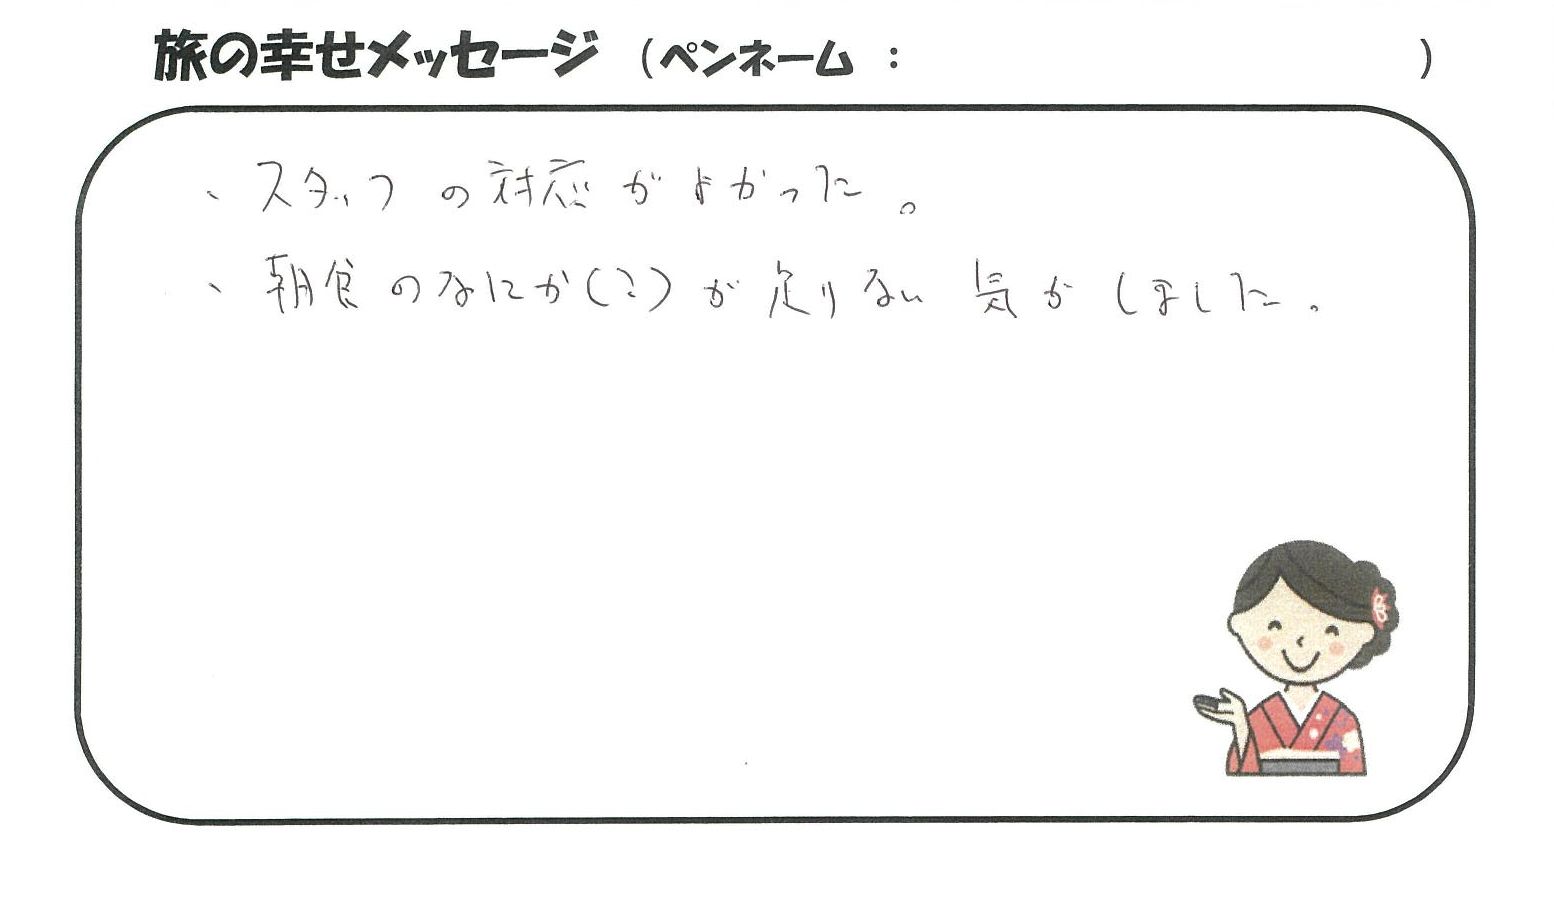 旅の幸せメッセージ (ペンネーム : )
、スタッフの対応がよかった。
、朝食のなにか(?)が足りない気がしました。